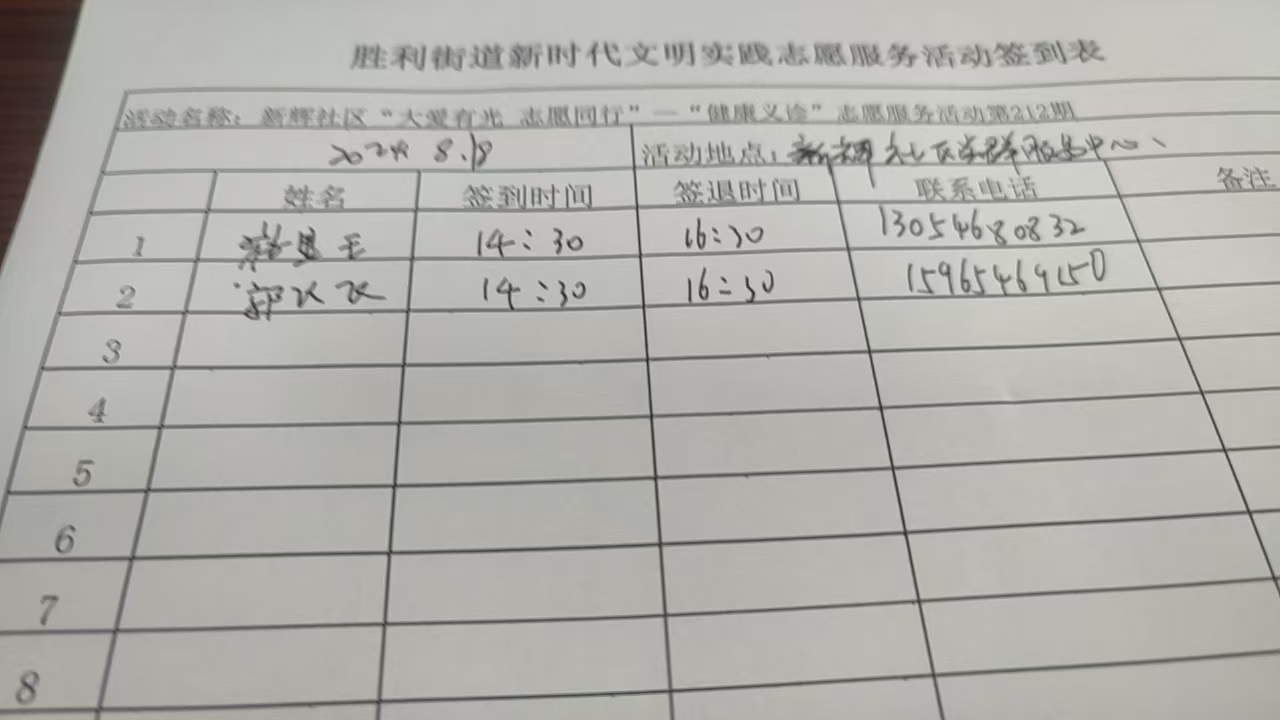 胜利街道新时代文明实践志愿服务活动签到表
活动名称：新辉社区“大爱有光 志愿同行”—“健康义诊”志愿服务活动第212期
2024 8.18 活动地点：新辉社区党群服务中心
姓名 签到时间 签退时间 联系电话 备注
1 14:30 16:30 13054680832
2 14:30 16:30 15965469150
3
4
5
6
7
8